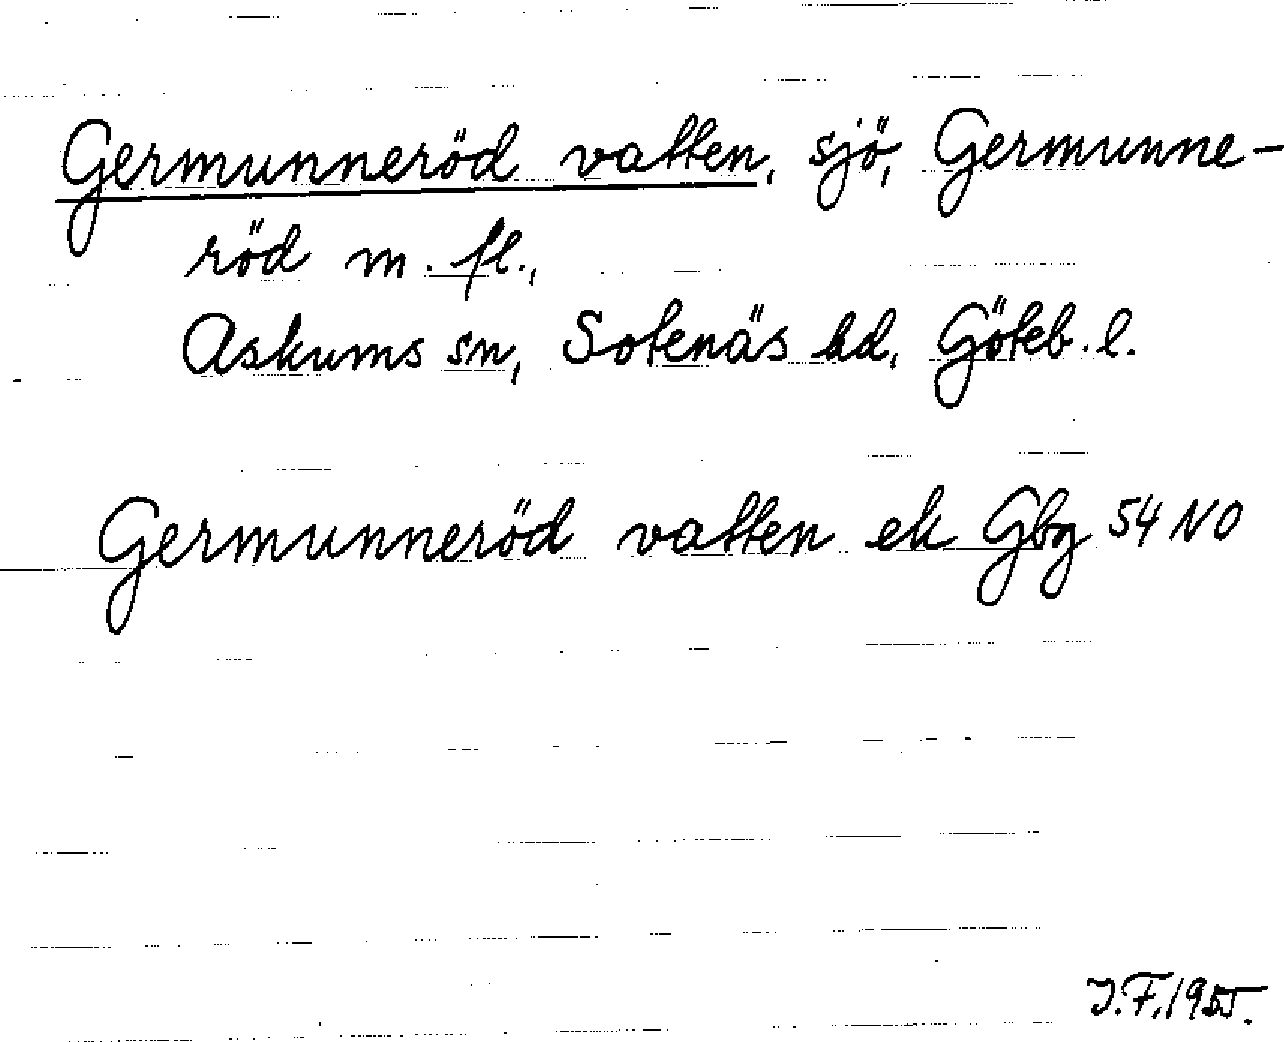 Germunneröd vatten, sjö, Germunne-
röd m. fl.,
Askums sn, Sotenäs hd, Göteb. l.
Germunneröd vatten ek Gbg 54 NO
J.F. 1955.